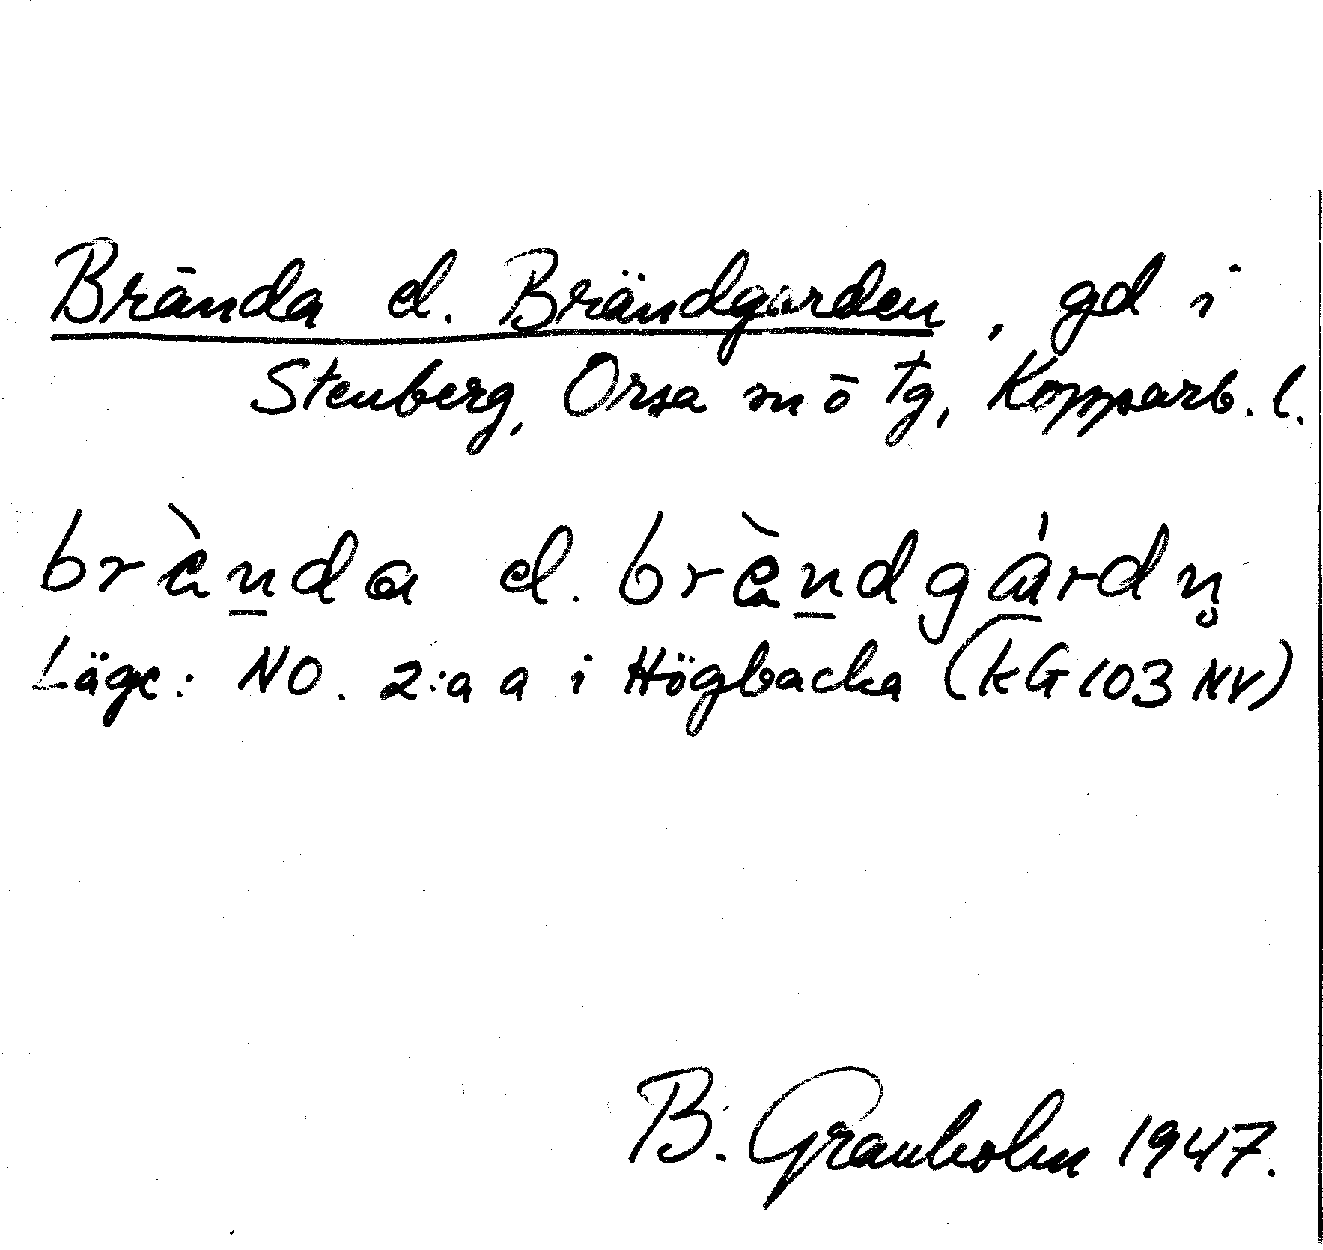 Brända el. Brändgården, gd i
Stenberg, Orsa sn ö tg, Kopparb. l.
brὲn̲da el. brὲn̲dgárdn̥
Läge: NO. 2:a a i Högbacka (KG 103 NV)
B. Granholm 1947.